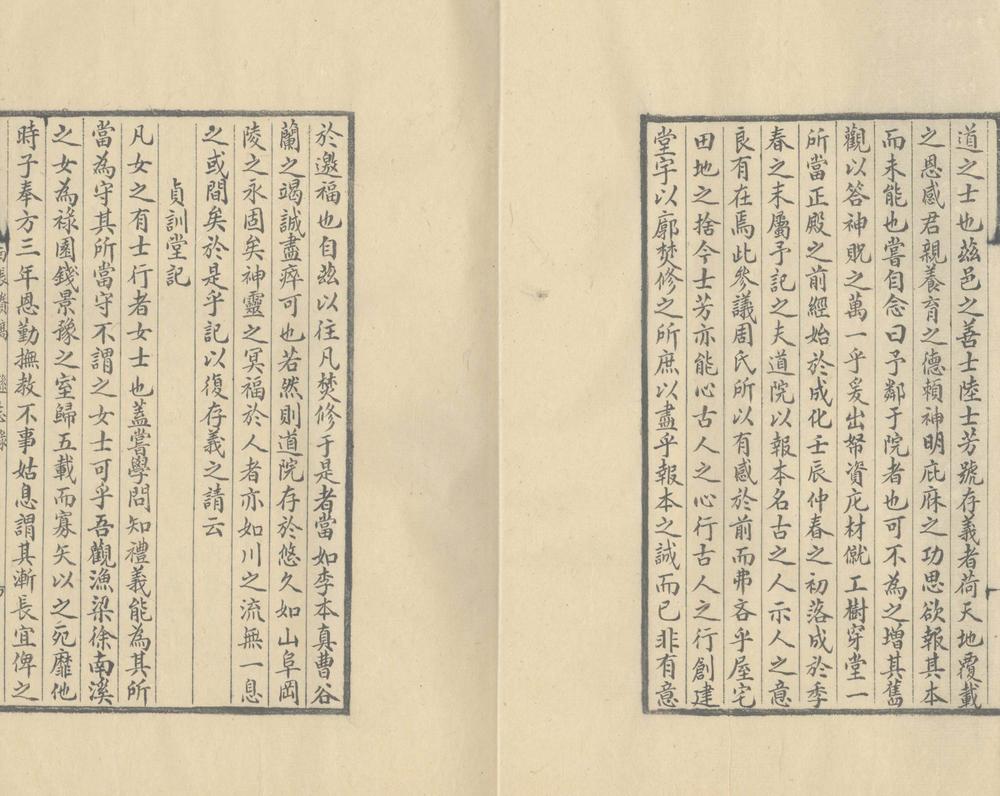 道之士也茲邑之善士陸士芳號存義者荷天地覆載
之恩感君親養育之德賴神明庇庥之功思欲報其本
而未能也嘗自念曰予鄰于院者也可不為之增其舊
觀以答神貺之萬一乎爰出帑資庀材僦工樹穿堂一
所當正殿之前經始於成化壬辰仲春之初落成於季
春之末屬予記之夫道院以報本名古之人示人之意
良有在焉此參議周氏所以有感於前而弗吝乎屋宅
田地之捨今士芳亦能心古人之心行古人之行創建
堂宇以廓焚修之所庶以盡乎報本之誠而已非有意
於邀福也自茲以往凡焚修于是者當如李本真曹谷
蘭之竭誠盡瘁可也若然則道院存於悠久如山阜岡
陵之永固矣神靈之冥福於人者亦如川之流無一息
之或間矣於是乎記以復存義之請云
貞訓堂記
凡女之有士行者女士也蓋嘗學問知禮義能為其所
當為守其所當守不謂之女士可乎吾觀漁梁徐南溪
之女為祿園錢景豫之室歸五載而寡矢以之死靡他
時子奉方三年恩勤撫教不事姑息謂其漸長宜俾之